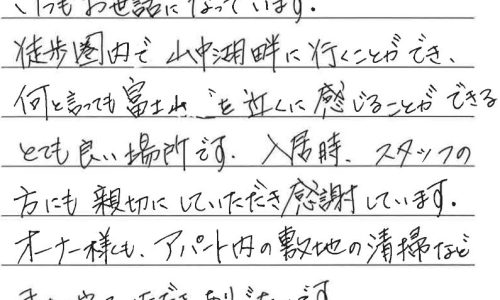 いつもお世話になっています.
徒歩圏内で 山中湖畔に行くことができ、
何と言っても富士山を近くに感じることができる
とても良い場所です. 入居時、スタッフの
方にも親切にしていただき感謝しています.
オーナー様も、アパート内の敷地の清掃など